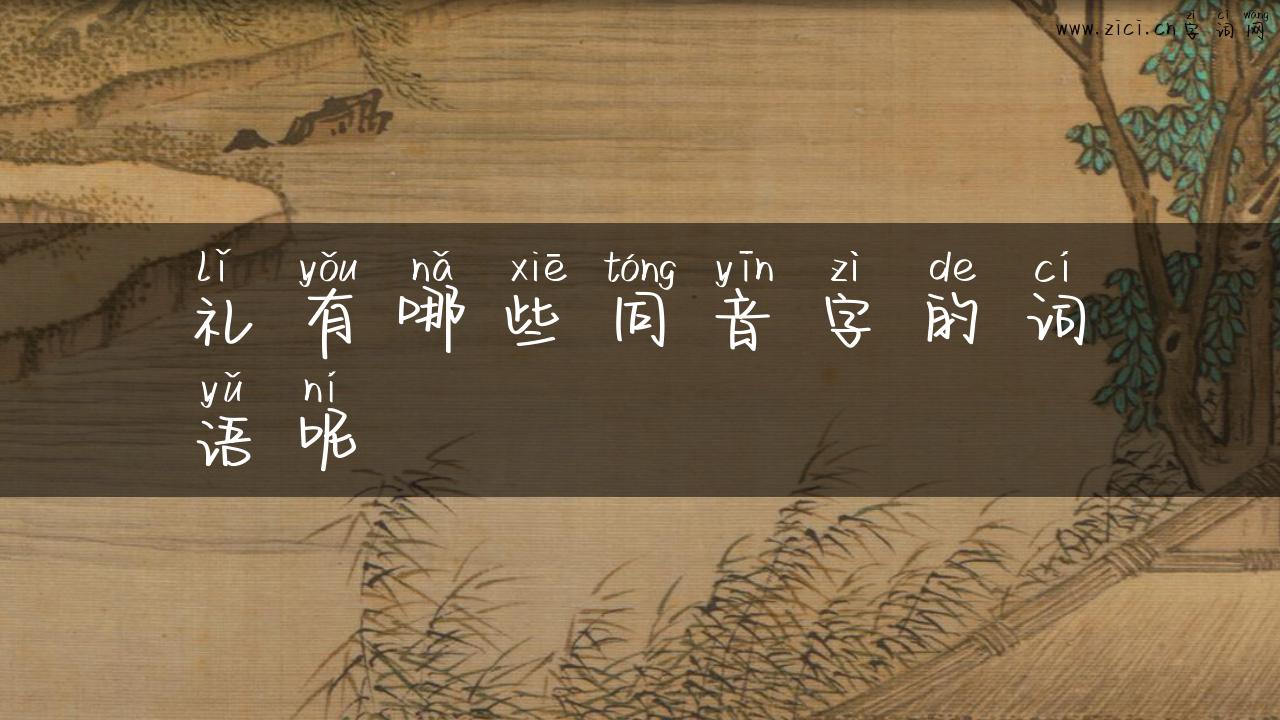 zì cí wǎng
www.zici.cn字词网
lǐ yǒu nǎ xiē tóng yīn zì de cí
礼有哪些同音字的词
yǔ ní
语呢